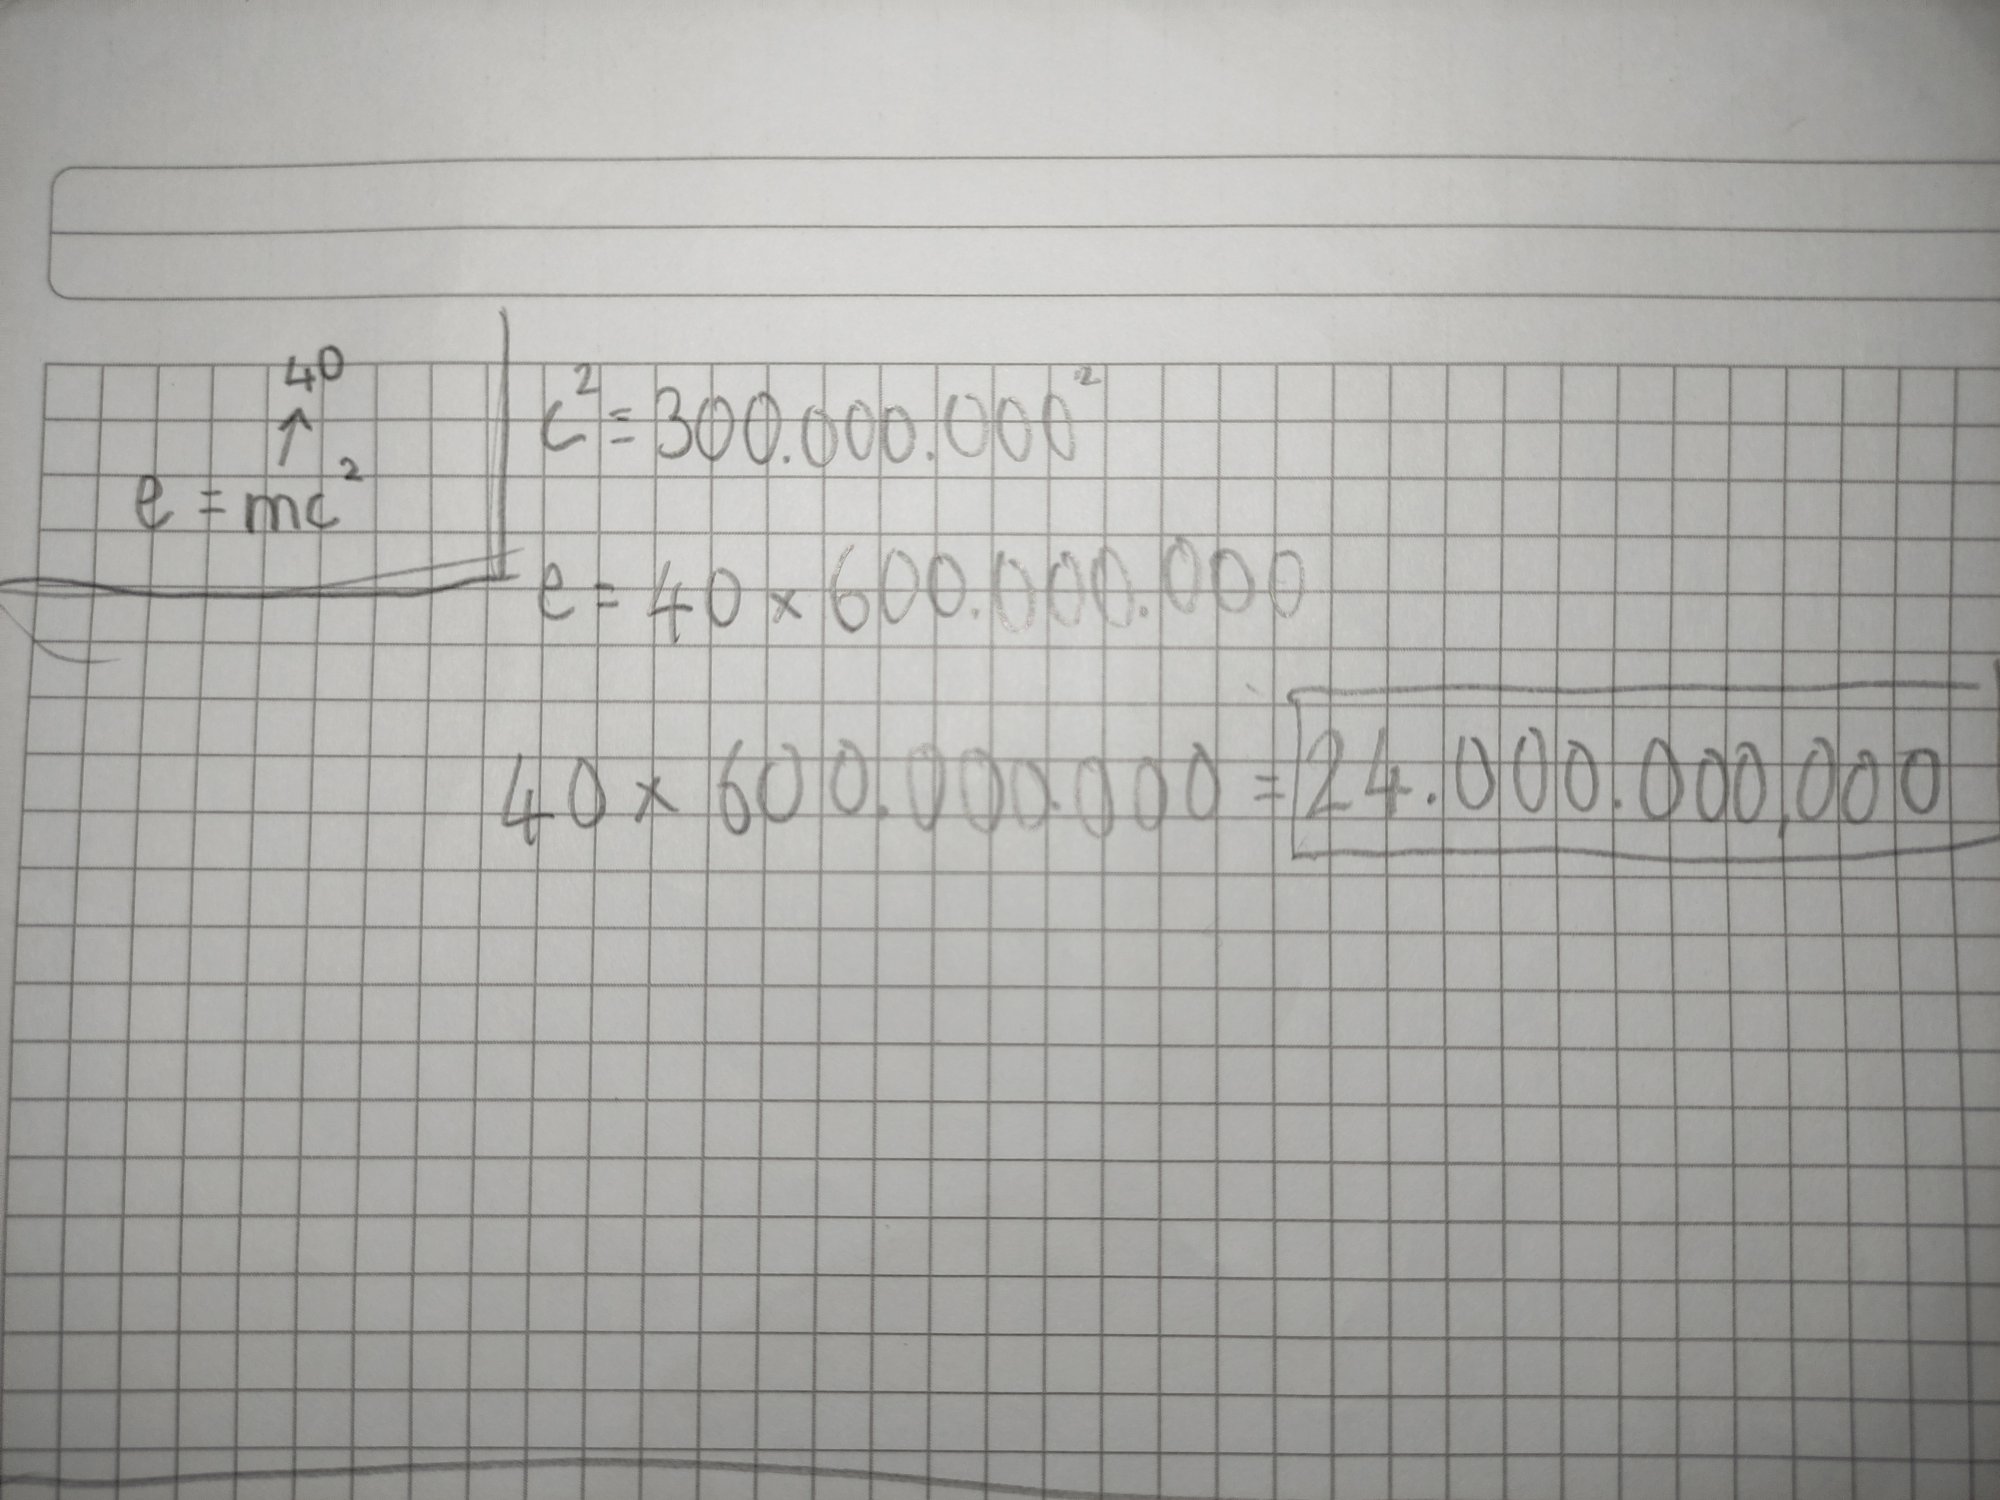 40
↑
e = mc²
c² = 300.000.000²
e = 40 × 600.000.000
40 × 600.000.000 = 24.000.000,000